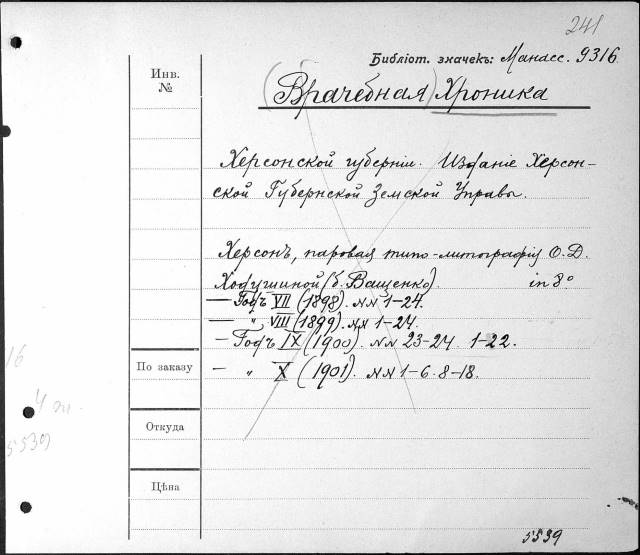 241
Библіот. значекъ: Манасс. 9316
Инв.
№
(Врачебная) Хроника
Херсонской губерніи. Изданіе Херсон-
ской Губернской Земской Управы.
Херсонъ, паровая типо-литографія О.Д.
Ходушиной (б. Ващенко). in 8°
— Годъ VII (1898). №№ 1-24.
— " VIII (1899). №№ 1-24.
— Годъ IX (1900). №№ 23-24 1-22.
— " X (1901). №№ 1-6. 8-18.
По заказу
Откуда
Цѣна
16
4 т.
5539
5539